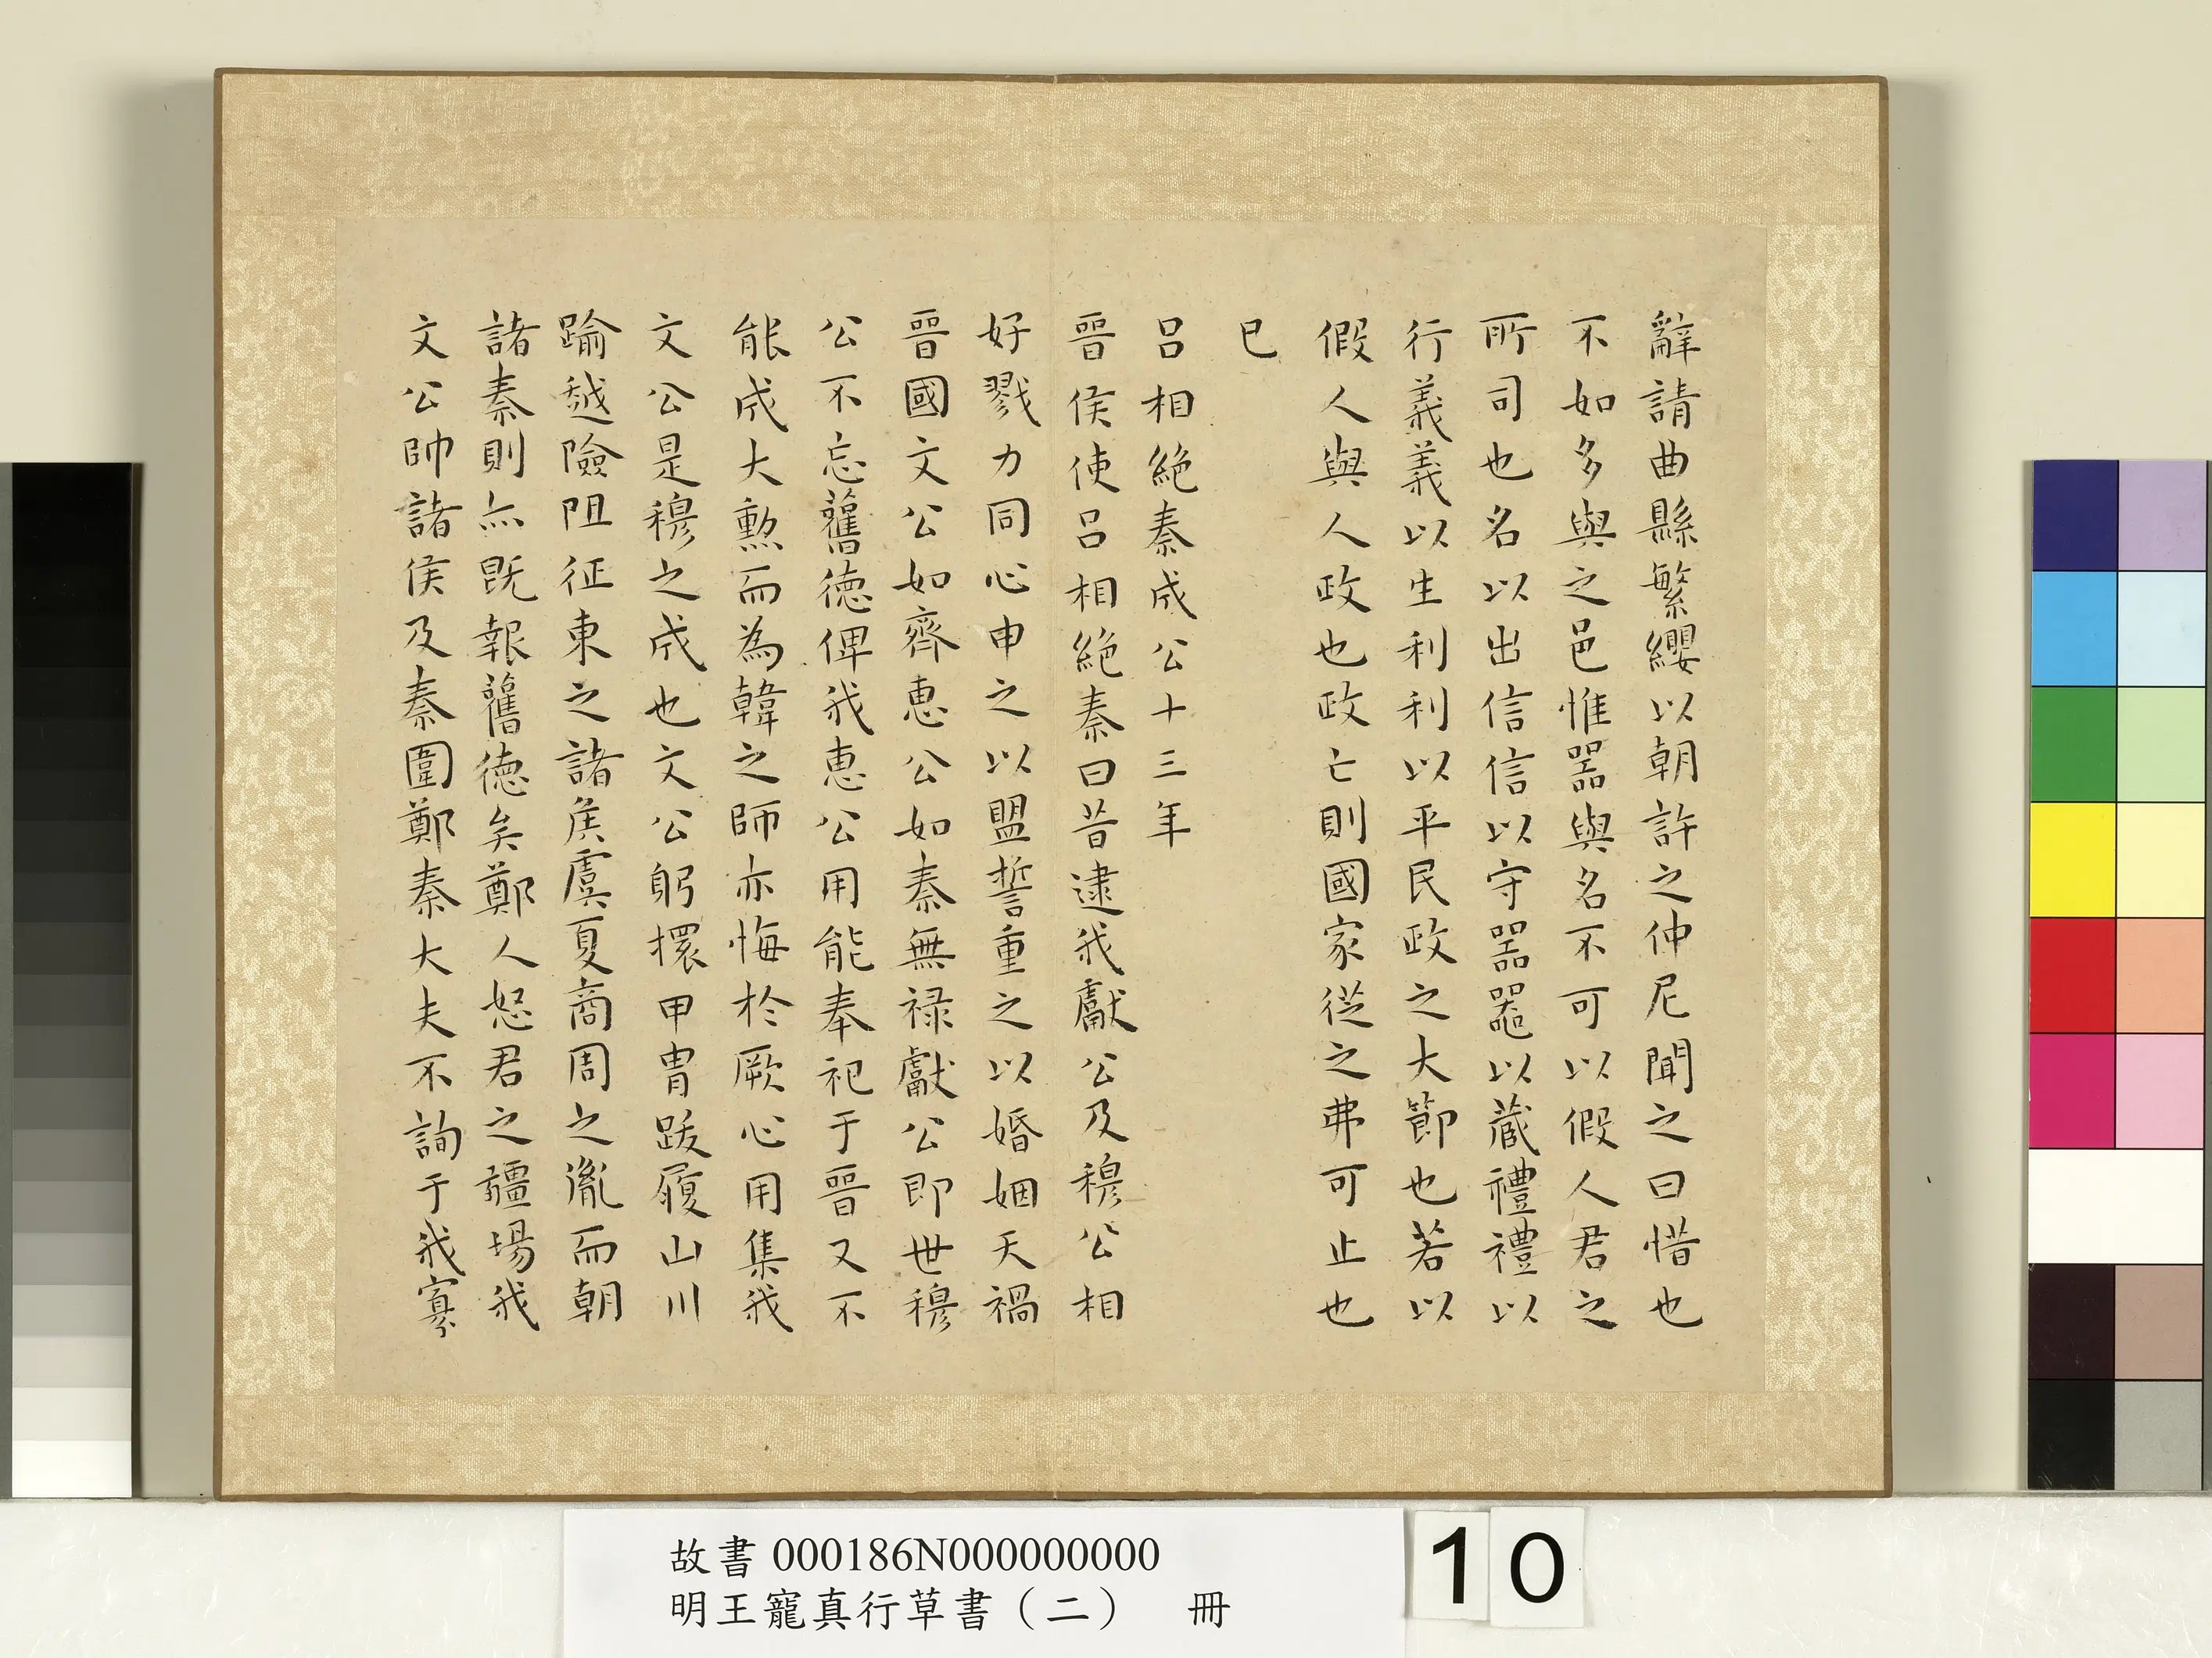 辭請曲縣繁纓以朝許之仲尼聞之曰惜也
不如多與之邑惟器與名不可以假人君之
所司也名以出信信以守器器以藏禮禮以
行義義以生利利以平民政之大節也若以
假人與人政也政亡則國家從之弗可止也
已
呂相絕秦成公十三年
晉侯使呂相絕秦曰昔逮我獻公及穆公相
好戮力同心申之以盟誓重之以婚姻天禍
晉國文公如齊惠公如秦無祿獻公即世穆
公不忘舊德俾我惠公用能奉祀于晉又不
能成大勲而為韓之師亦悔於厥心用集我
文公是穆之成也文公躬擐甲冑跋履山川
踰越險阻征東之諸侯虞夏商周之胤而朝
諸秦則亦既報舊德矣鄭人怒君之疆埸我
文公帥諸侯及秦圍鄭秦大夫不詢于我寡
故書000186N000000000
明王寵真行草書（二） 冊
10